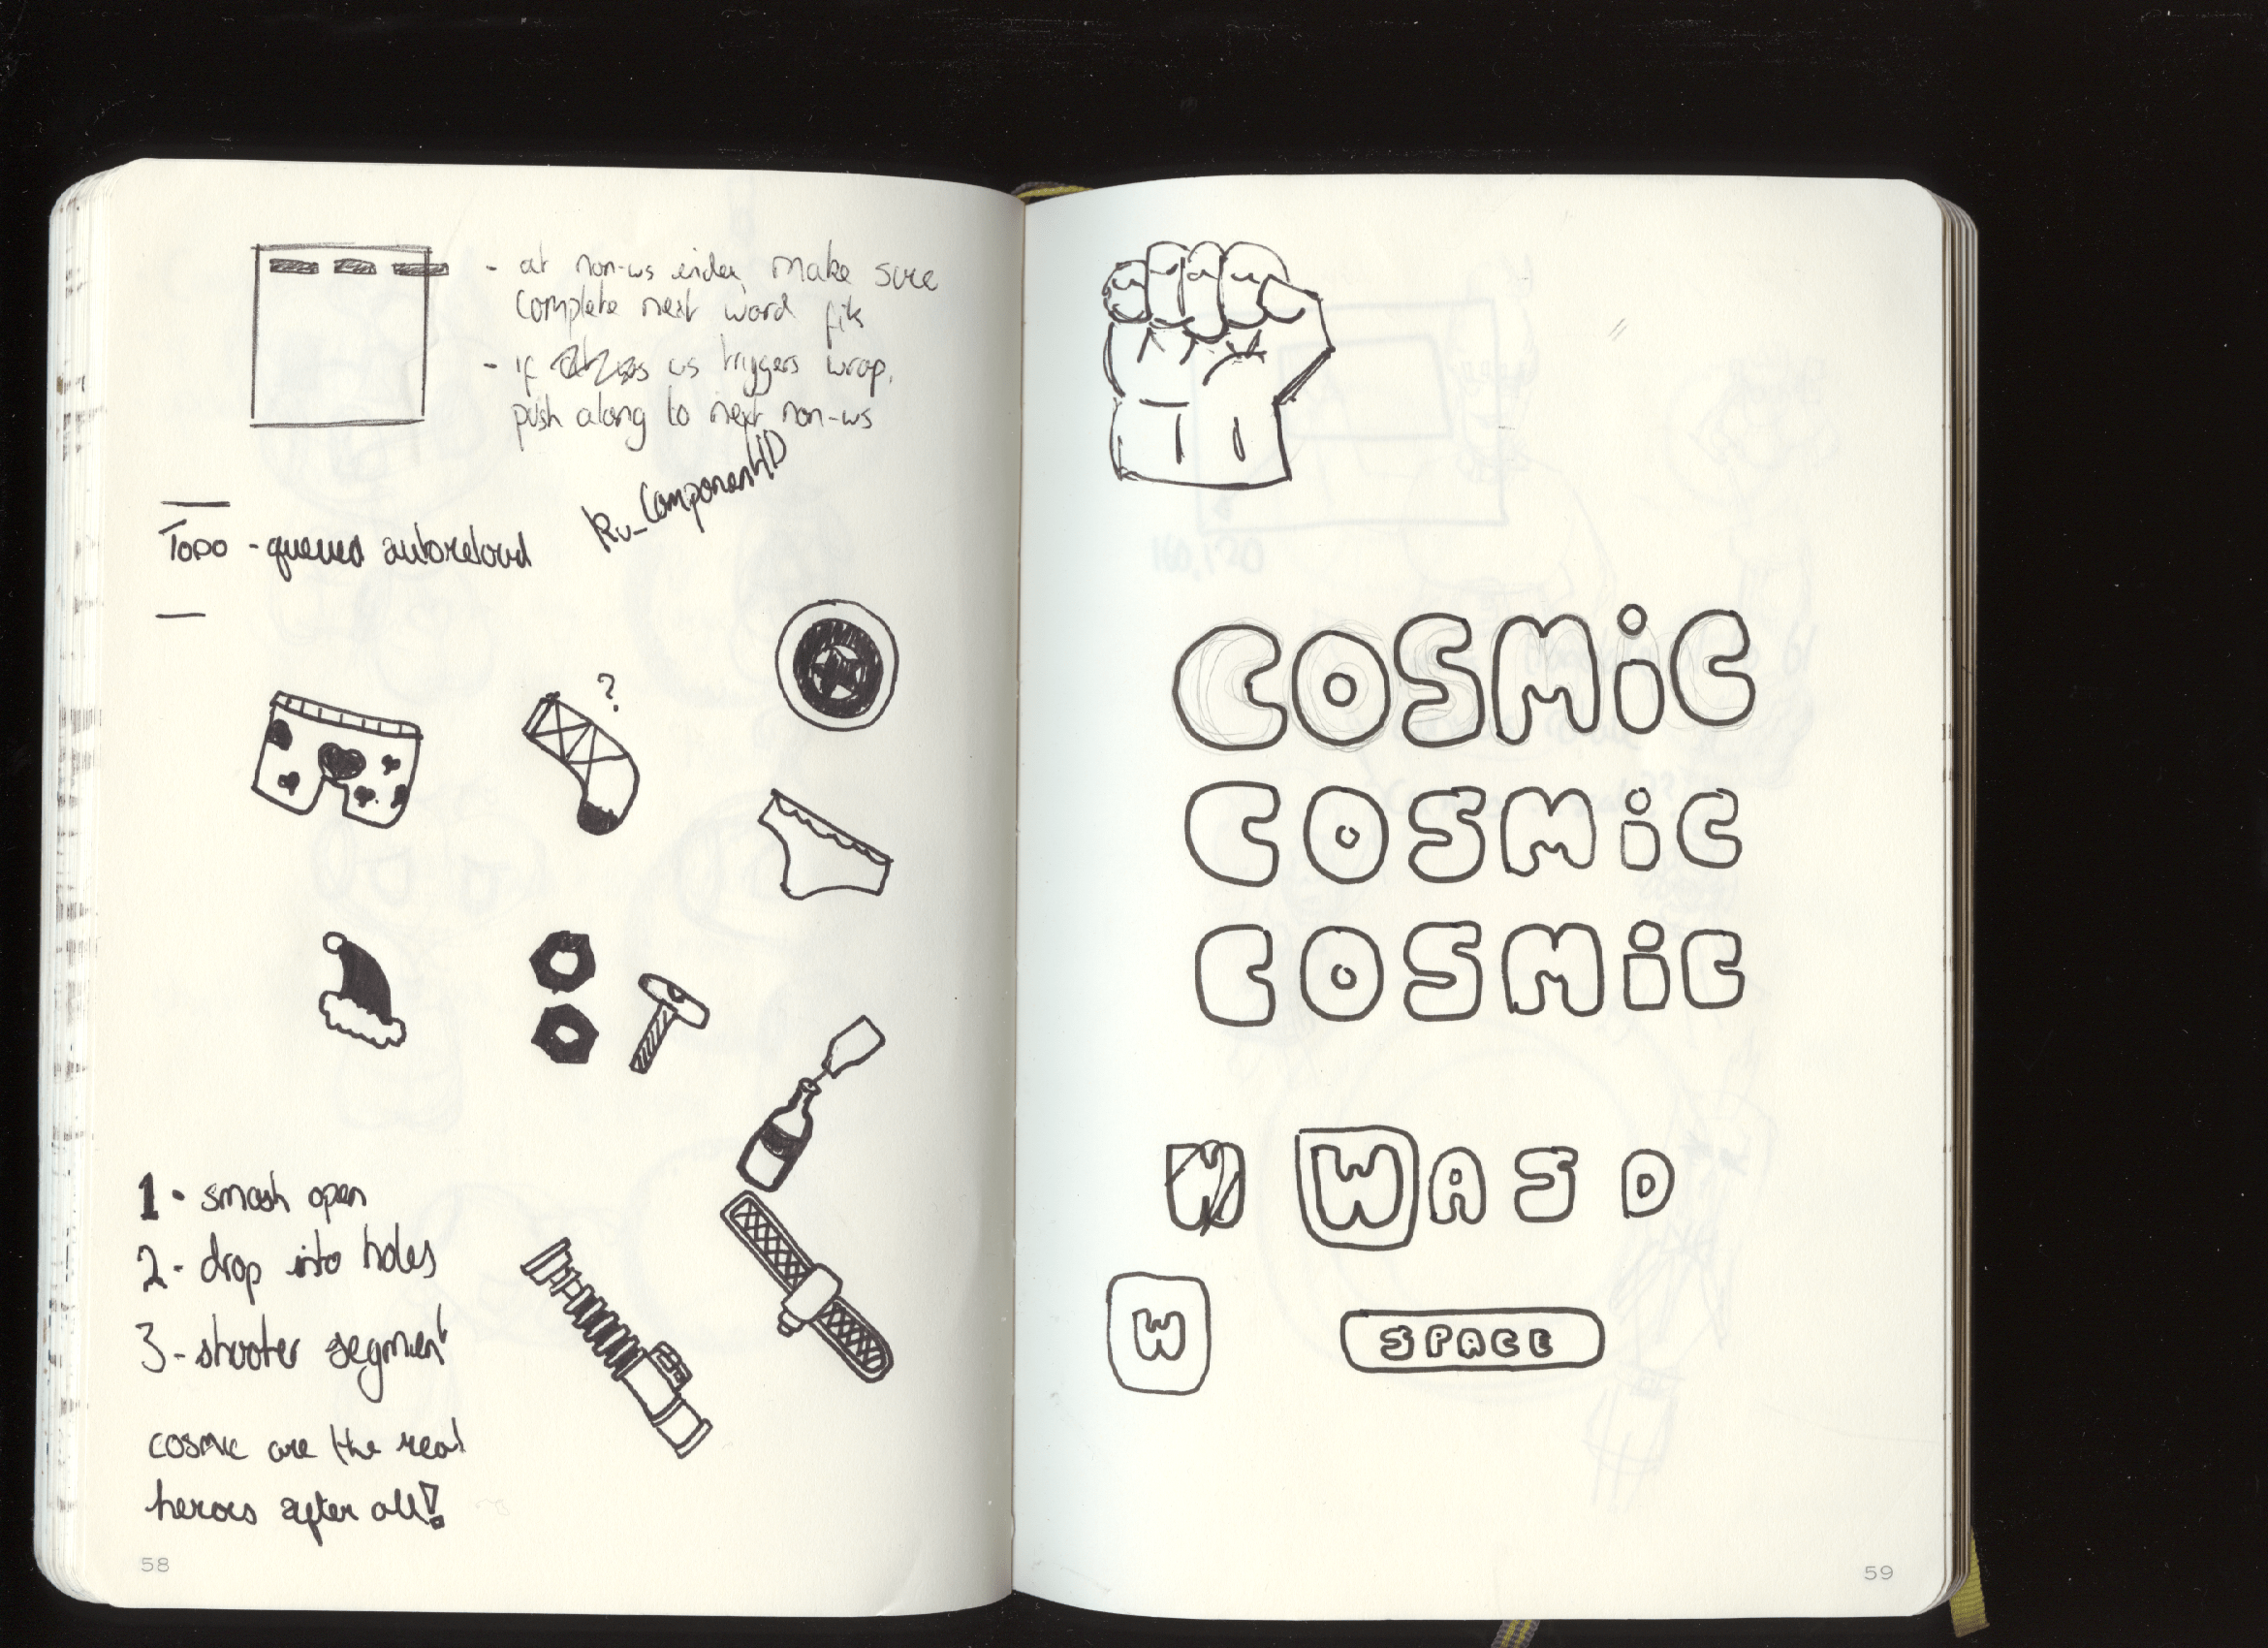 - at non-ws index, make sure
complete next word fits
- if ws triggers wrap,
push along to next non-ws
Ru_ComponentID
TODO - queued autoreload
?
1 - smash open
2 - drop into holes
3 - shooter segment
cosmic are the real
heroes after all!
58
160,120
COSMiC
COSMiC
COSMiC
W W A S D
W SPACE
59